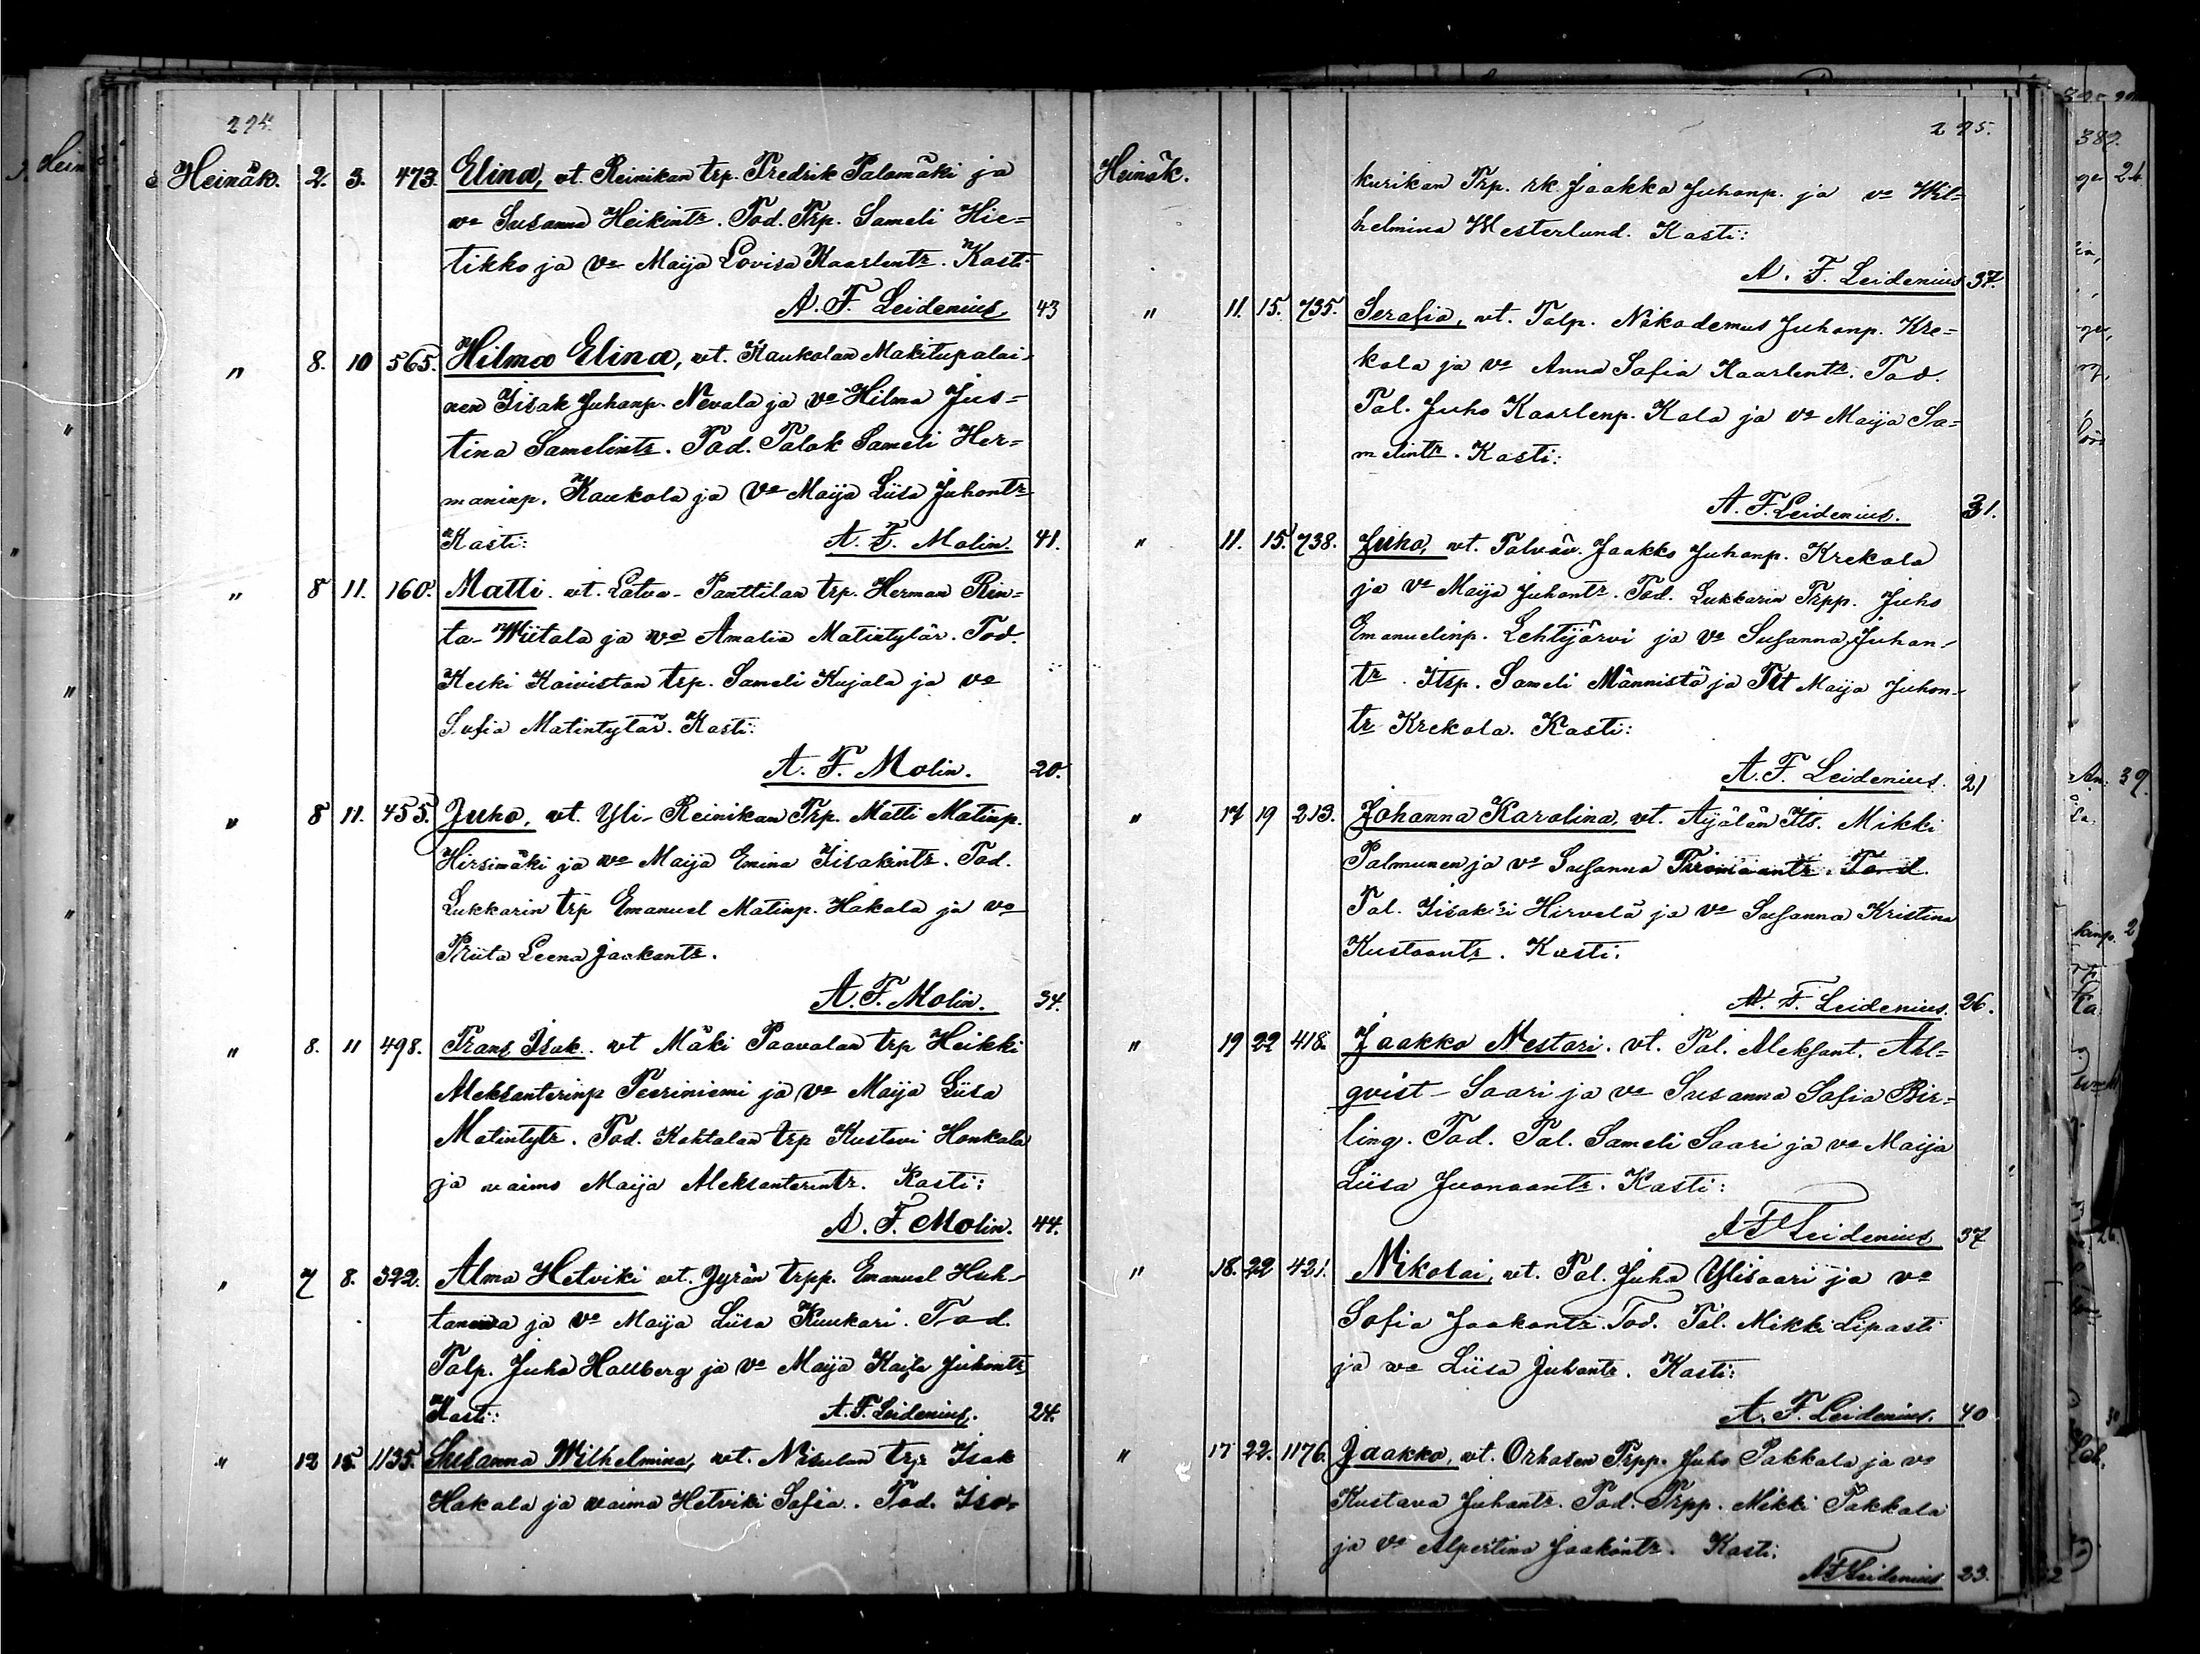 294.
Heinäk. 2. 3. 473. Elina, vt. Reinikan trp. Fredrik Palomäki ja
vo Susanna Heikintr. Tod. Trp. Sameli Hie=
tikko ja Vo Maija Lovisa Kaarlentr. Kasti
A. F. Leidenius 43
" 8. 10 565. Hilma Elina, vt. Kaukolan Mäkitupalai-
nen Iisak Juhanp. Nevala ja Vo Hilma Jus=
tina Samelintr. Tod. Talok Sameli Her=
maninp. Kaukola ja Vo Maija Liisa Juhontr
Kasti: A. F. Molin. 41.
" 8 11. 160. Matti. vt. Latva-Panttilan trp. Herman Rin=
ta-Wiitala ja vo Amalia Matintytär. Tod.
Keski Koiviston trp. Sameli Kujala ja vo
Sofia Matintytär. Kasti:
A. F. Molin. 20.
" 8 11. 455. Juho, vt. Yli-Reinikan Trp. Matti Matinp.
Hirsimäki ja vo Maija Emina Iisakintr. Tod.
Lukkarin trp Emanuel Matinp. Hakala ja vo
Priita Leena Jaakontr.
A. F. Molin. 34.
" 8. 11 498. Frans Isak. vt Mäki Paavolan trp Heikki
Aleksanterinp Peeriniemi ja vo Maija Liisa
Matintytr. Tod. Kahtalan trp Kustavi Honkala
ja vaimo Maija Aleksanterintr. Kasti:
A. F. Molin. 44.
" 7 8. 322. Alma Hetviki vt. Jyrän trpp. Emanuel Huh-
ja Vo Maija Liisa Kuukari. Tod.
Talp. Juho Hallberg ja Vo Maija Kaisa Juhontr
Kasti: A. F. Leidenius. 24.
" 12 15. 1135. Susanna Wilhelmina, vt. Nisulan trp Isak
Hakala ja vaimo Hetviki Sofia. Tod. Iso=
295.
Heinäk. kurikan Trp. rk Jaakko Juhanp. ja vo Wil=
helmina Westerlund. Kasti:
A. F. Leidenius 37.
" 11. 15. 735. Serafia, vt. Talp. Nikodemus Juhanp. Kre=
kola ja vo Anna Sofia Kaarlentr. Tod.
Tal. Juho Kaarlenp. Kola ja vo Maija Sa=
melintr. Kasti:
A. F. Leidenius. 31.
" 11. 15. 738. Juho, vt. Talväv. Jaakko Juhanp. Krekola
ja vo Maija Juhontr. Tod. Lukkarin Trpp. Juho
Emanuelinp. Lehtijärvi ja vo Susanna Juhon-
tr. Itsp. Sameli Männistö ja Tlt Maija Juhon-
tr Krekola. Kasti:
A. F. Leidenius. 21
" 17 19 213. Johanna Karolina, vt. Äijälän Its. Mikki
Palmunen ja vo Susanna Tod.
Tal. Iisakki Hirvelä ja vo Susanna Kristina
Kustaantr. Kasti:
A. F. Leidenius. 26.
" 19 22 418. Jaakko Nestori. vt. Tal. Aleksant. Ahl=
qvist-Saari ja vo Susanna Sofia Bir=
ling. Tod. Tal. Sameli Saari ja vo Maija
Liisa Juonaantr. Kasti:
A F Leidenius 37
" 18. 22 421. Nikolai, vt. Tal. Juho Ylisaari ja vo
Sofia Jaakontr. Tod. Tal. Mikki Lipasti
ja vo Liisa Juhontr. Kasti:
A. F. Leidenius. 40
" 17 22. 1176. Jaakko, vt. Orhasen Trpp. Juho Pakkala ja vo
Kustava Juhontr. Tod. Trpp. Mikki Pakkala
ja Vo Alpertina Jaakontr. Kasti:
A F Leidenius 23.